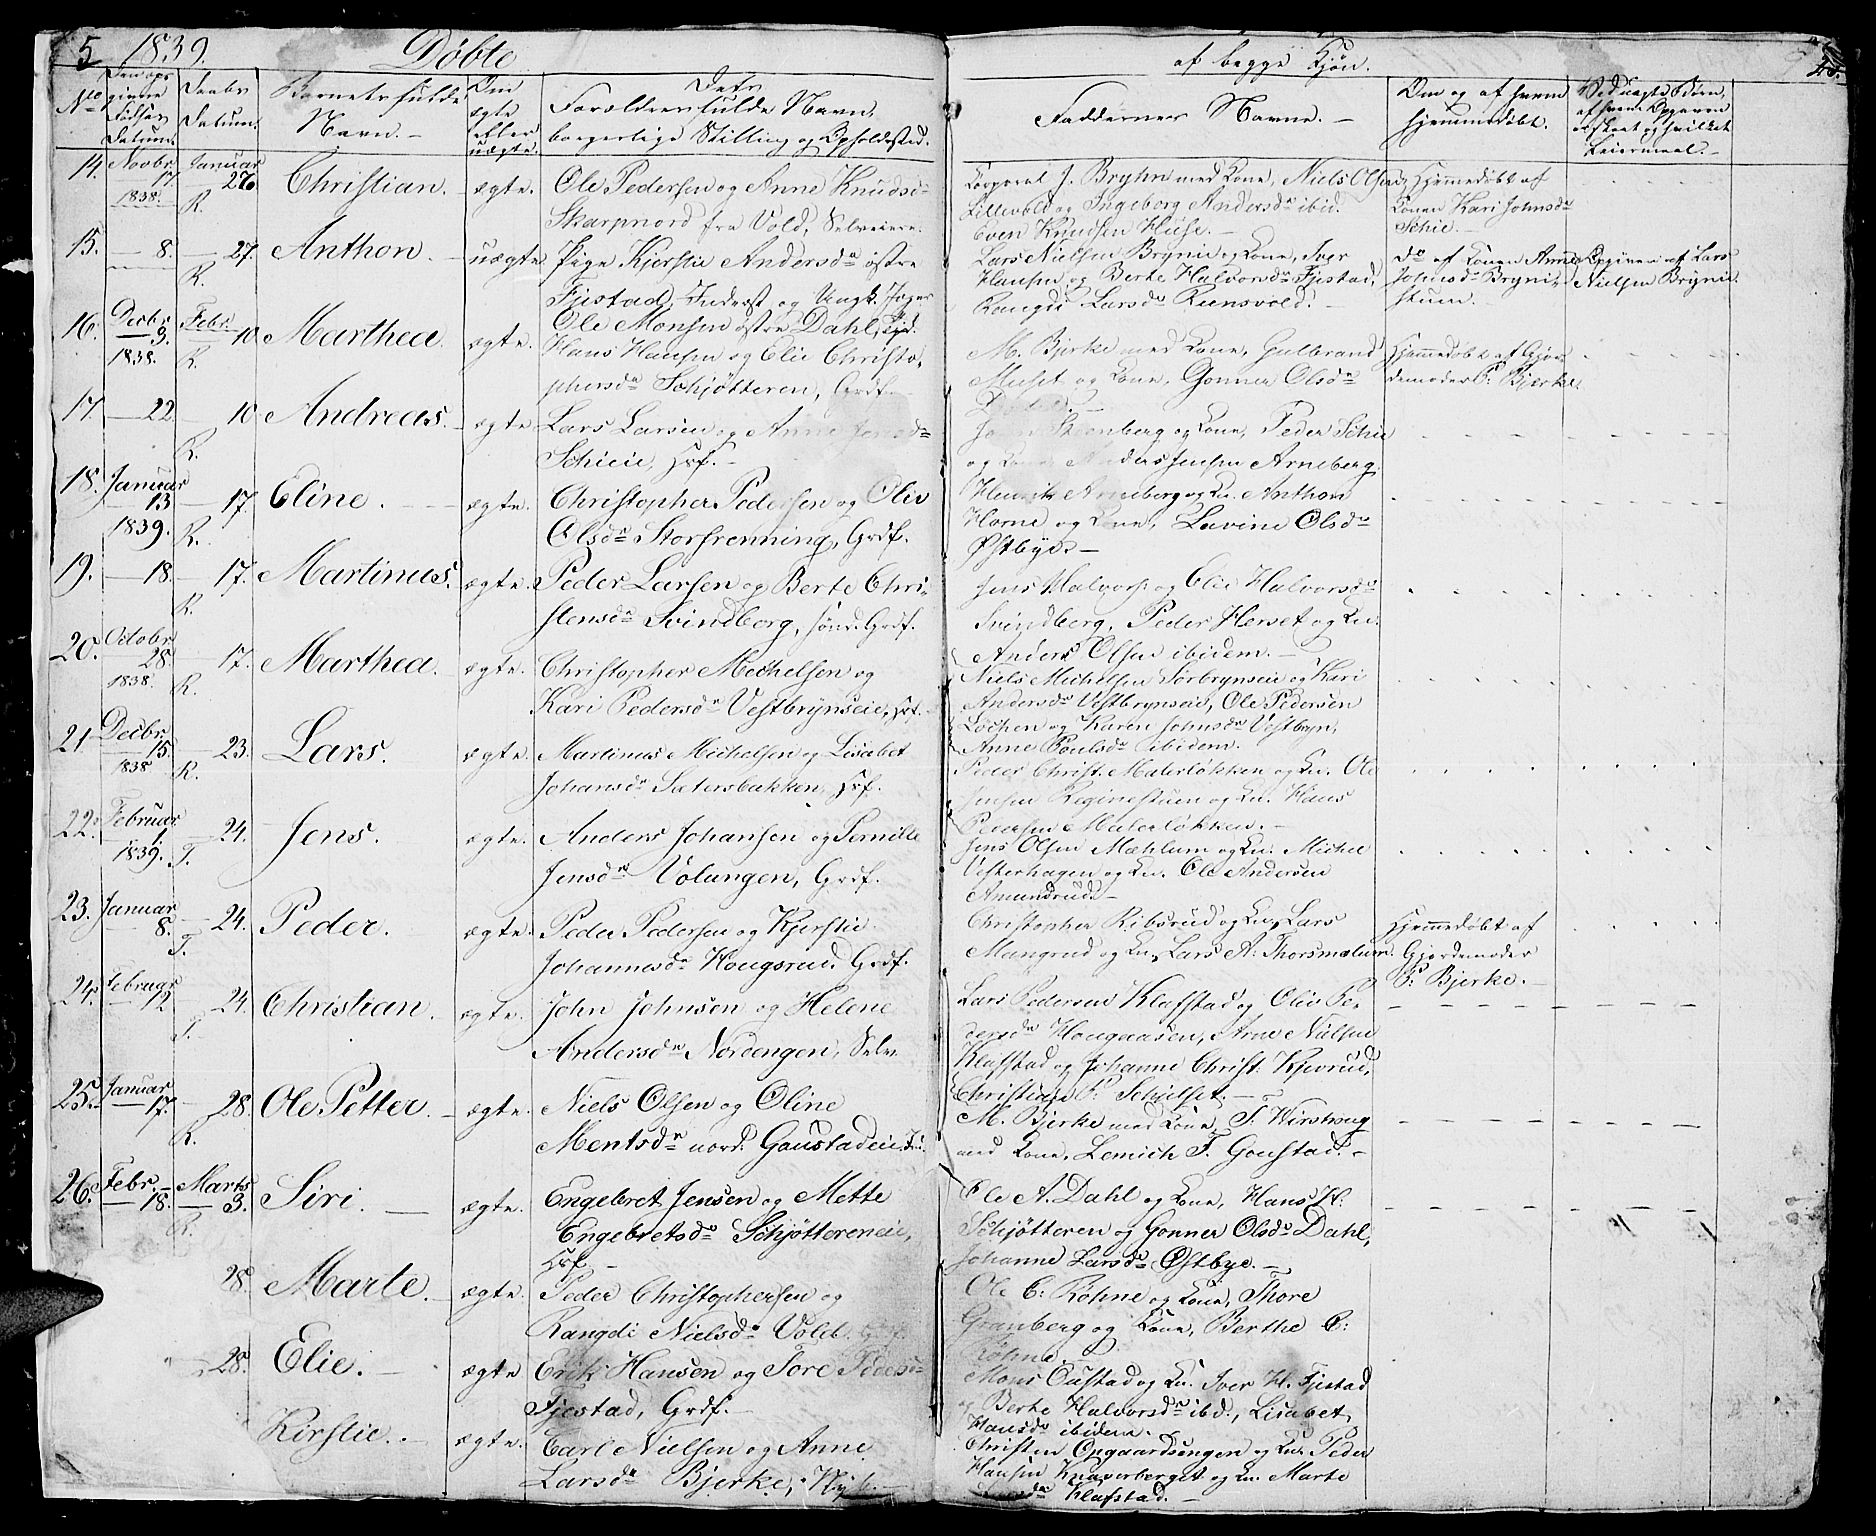 5 1839. Døbte
af begge Kjön.
No Den opgivne Födsels Datum
Daabs Datum.
Barnets fulde Navn.
Om ægte eller uægte.
Dets Forældres fulde Navn, borgerlige Stilling og Opholdssted.
Faddernes Navne.
Om og af hvem hjemmedøbt.
14. Novbr 17. 1838. Januar 27 R. Christian. ægte.
Ole Pedersen og Anne Knudsdr
Skarpnord fra Vold, Selveiere.
Corporal J. Bryhn med Kone, Niels Olsen
Lillevold og Ingeborg Andersdr ibid.
Even Knudsen Huse.
Hjemmedøbt af
Konen Kari Johnsdr
Schie.
15. 8. 27. R. Anthon. uægte.
Pige Kjerstie Andersdr östre
Fjestad, Inderst og Ungk.
Ole Monsen östre Dahl,
Lars Nielsen Brynie og Kone, Iver
Hansen og Berte Halvorsdr Fjestad,
Rangdi Larsdr Runsvold.
Do af Konen Anne
Johnsdr Brynie
stuen.
Opgiven af Lars
Nielsen Brynie
16. Decbr 9. 1838. Febr. 10 R. Marthea. ægte.
Hans Hansen og Elie Christo-
phersdr Schjøtteren, Grdf.
M. Bjerke med Kone, Gulbrand
Muset og Kone, Gonner Olsdr
Hjemmedøbt af Gjor
demoder P: Bjerke.
17. 22 10 R. Andreas. ægte.
Lars Larsen og Anne Jensdr
Schieie, Hsf.
og Kone, Peder Schie
og Kone Anders Jensen Arneberg.
18. Januar 13 1839. 17. R. Eline. ægte.
Christopher Pedersen og Olive
Olsdr Storfrenning, Grdf.
Henrik Arneberg og Kn. Anthon
Horne og Kone, Lavine Olsdr
Østbye.
19. 18. 17. R. Martinus. ægte.
Peder Larsen og Berte Chri-
stensdr Svindberg, sönd. Grdf.
Jens Halvors. og Elie Halvorsdr
Svindberg, Peder Herset og Kn.
Anders Olsen ibidem.
20. Octobr 28. 1838. 17. R. Marthea. ægte.
Christopher Michelsen og
Kari Pedersdr Vestbrynseie, Hsf.
Niels Michelsen Sörbrynseie og Kari
Andersdr Vestbrynseie, Ole Pedersen
Løchen og Karen Johnsdr Vestbryn,
Anne Poulsdr ibidem.
21 Decbr 15. 1838 23. R. Lars. ægte.
Martinus Michelsen og Lisabet
Johansdr Sætersbakken, Hsf.
Peder Christ. Malerløkken og Kn. Ole
Jensen Reginestuen og Kn. Hans
Pedersen Malerløkken.
22. Februar 1. 1839. 24. T. Jens. ægte.
Anders Johansen og Pernille
Jensdr Volangen, Grdf.
Jens Olsen Mæhlum og Kn. Michel
Vesterhagen og Kn. Ole Andersen
Amundrud.
23. Januar 8. 24. T. Peder. ægte.
Peder Pedersen og Kjerstie
Johannesdr Hougsrud. Grdf.
Christopher Ribsrud og Kn, Lars
Mangrud og Kn, Lars A. Thorsmælum.
Hjemmedøbt af
Gjordemoder
P: Bjerke.
24. Februar 12. 24. T. Christian. ægte.
John Johnsen og Helene
Andersdr Nordengen, Selv.
Lars Pedersen Klafstad og Olie Pe-
dersdr Hougaasen, Arne Nielsen
Klafstad og Johanne Christ. Kjevrud,
Christian P. Schielset.
25. Januar 17. 28. R. Ole Petter. ægte.
Niels Olsen og Oline
Mentsdr nord. Goustadeie,
M. Bjerke med Kone, T. Wirstwug
med Kone, Lemich F. Goustad.
26. Febr. 18. Marts 3. R. Siri. ægte.
Engebret Jensen og Mette
Engebretsdr Schjøttereneie,
Hsf.
Ole A. Dahl og Kone, Hans H.
Schjøtteren og Gonner Olsdr Dahl,
Johanne Larsdr Østbye.
28. Marte. ægte.
Peder Christophersen og
Rangdi Nielsdr Vold.
Ole C: Röhne og Kone, Thore
Granberg og Kone, Berthe C:
Röhne.
28. Elie. ægte
Erik Hansen og Tore Pedersdr
Fjestad, Grdf.
Mons Oustad og Kn. Iver H. Fjestad
og Berte Halvorsdr ibd., Lisabet
Hansdr ibidem.
Kirstie. ægte.
Carl Nielsen og Anne
Larsdr Bjerke,
Christen Opgaardsengen og Kn. Peder
Hansen Knaverberget og Kn. Marte
Klafstad.